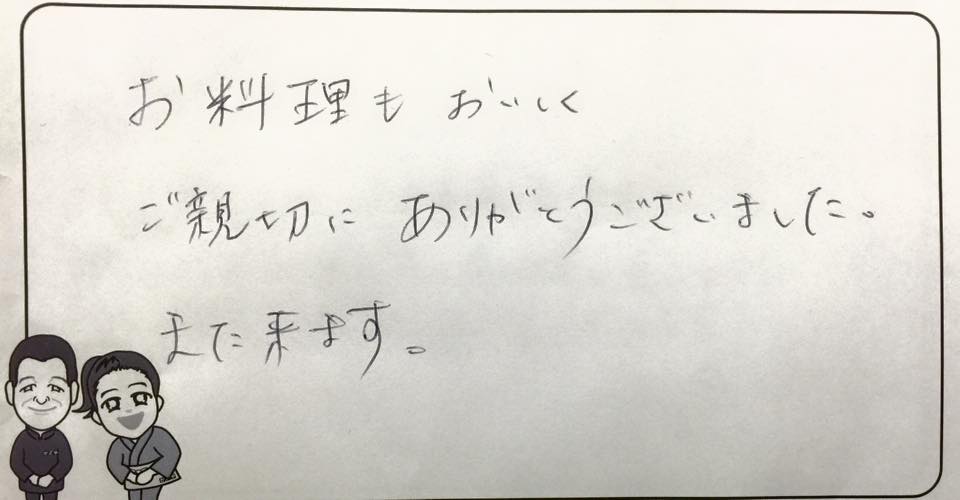 お料理も おいしく
ご親切に ありがとうございました。
また来ます。